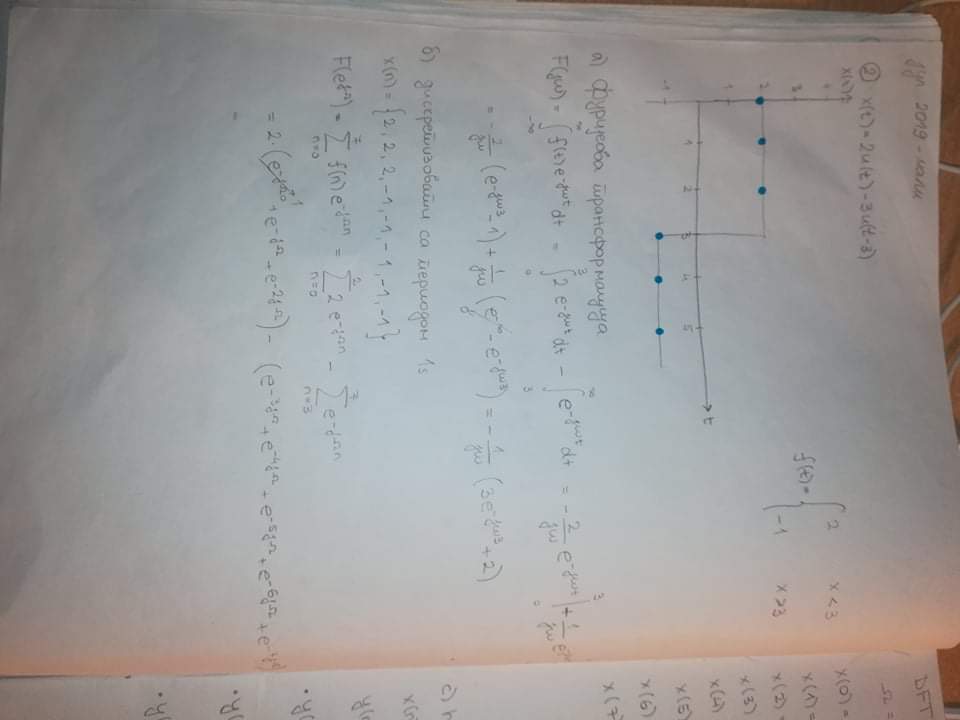 јул 2019 - мали
② x(t) = 2u(t) - 3u(t-3)
x(t)
4
3
2
1
-1
1 2 3 4 5 t
f(t) = { 2 x < 3
-1 x > 3
а) Фуријеова трансформација
F(jω) = ∫ f(t) e^-jωt dt = ∫ 2 e^-jωt dt - ∫ e^-jωt dt = - 2/jω e^-jωt | + 1/jω
-∞ ∞ 0 3 3 ∞ 3 0
= - 2/jω (e^-jω3 - 1) + 1/jω (e^-∞ - e^-jω3) = - 1/jω (3e^-jω3 + 2)
0
б) дискретизовати са периодом 1s
x(n) = {2, 2, 2, -1, -1, -1, -1, -1}
F(e^jΩ) = Σ f(n) e^-jΩn = Σ 2 e^-jΩn - Σ e^-jΩn
7 n=0 2 n=0 7 n=3
= 2 · (e^-jΩ0 + e^-jΩ + e^-2jΩ) - (e^-3jΩ + e^-4jΩ + e^-5jΩ + e^-6jΩ +
1
=
DFT
Ω =
x(0) =
x(1) =
x(2) =
x(3)
x(4)
x(5)
x(6)
x(7
c)